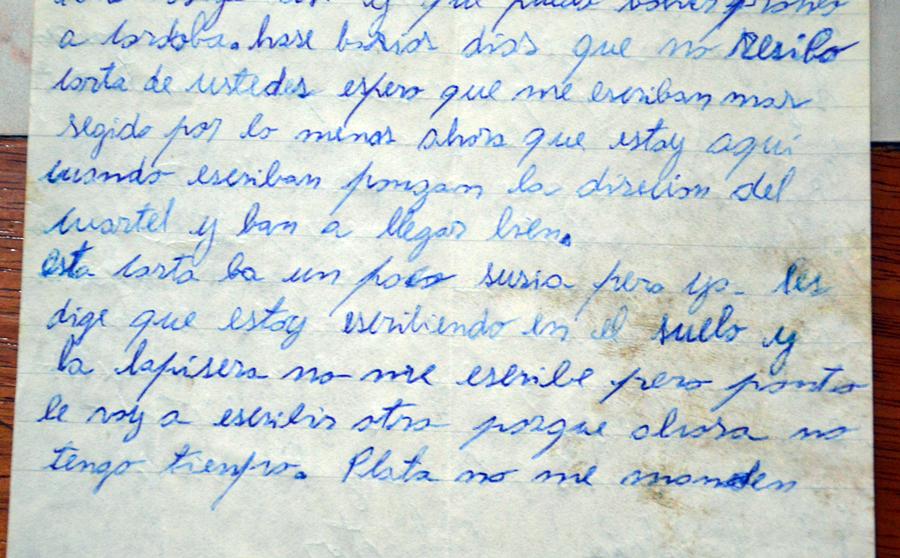 y que
a cordoba. hase barios dias que no Resibo
carta de ustedes espero que me escriban mas
segido por lo menos ahora que estoy aqui
cuando escriban pongan la direcion del
cuartel y ban a llegar bien.
esta carta ba un poco susia pero ya les
dige que estoy escribiendo en el suelo y
la lapisera no me escribe pero pronto
le voy a escribir otra porque ahora no
tengo tienpo. Plata no me manden